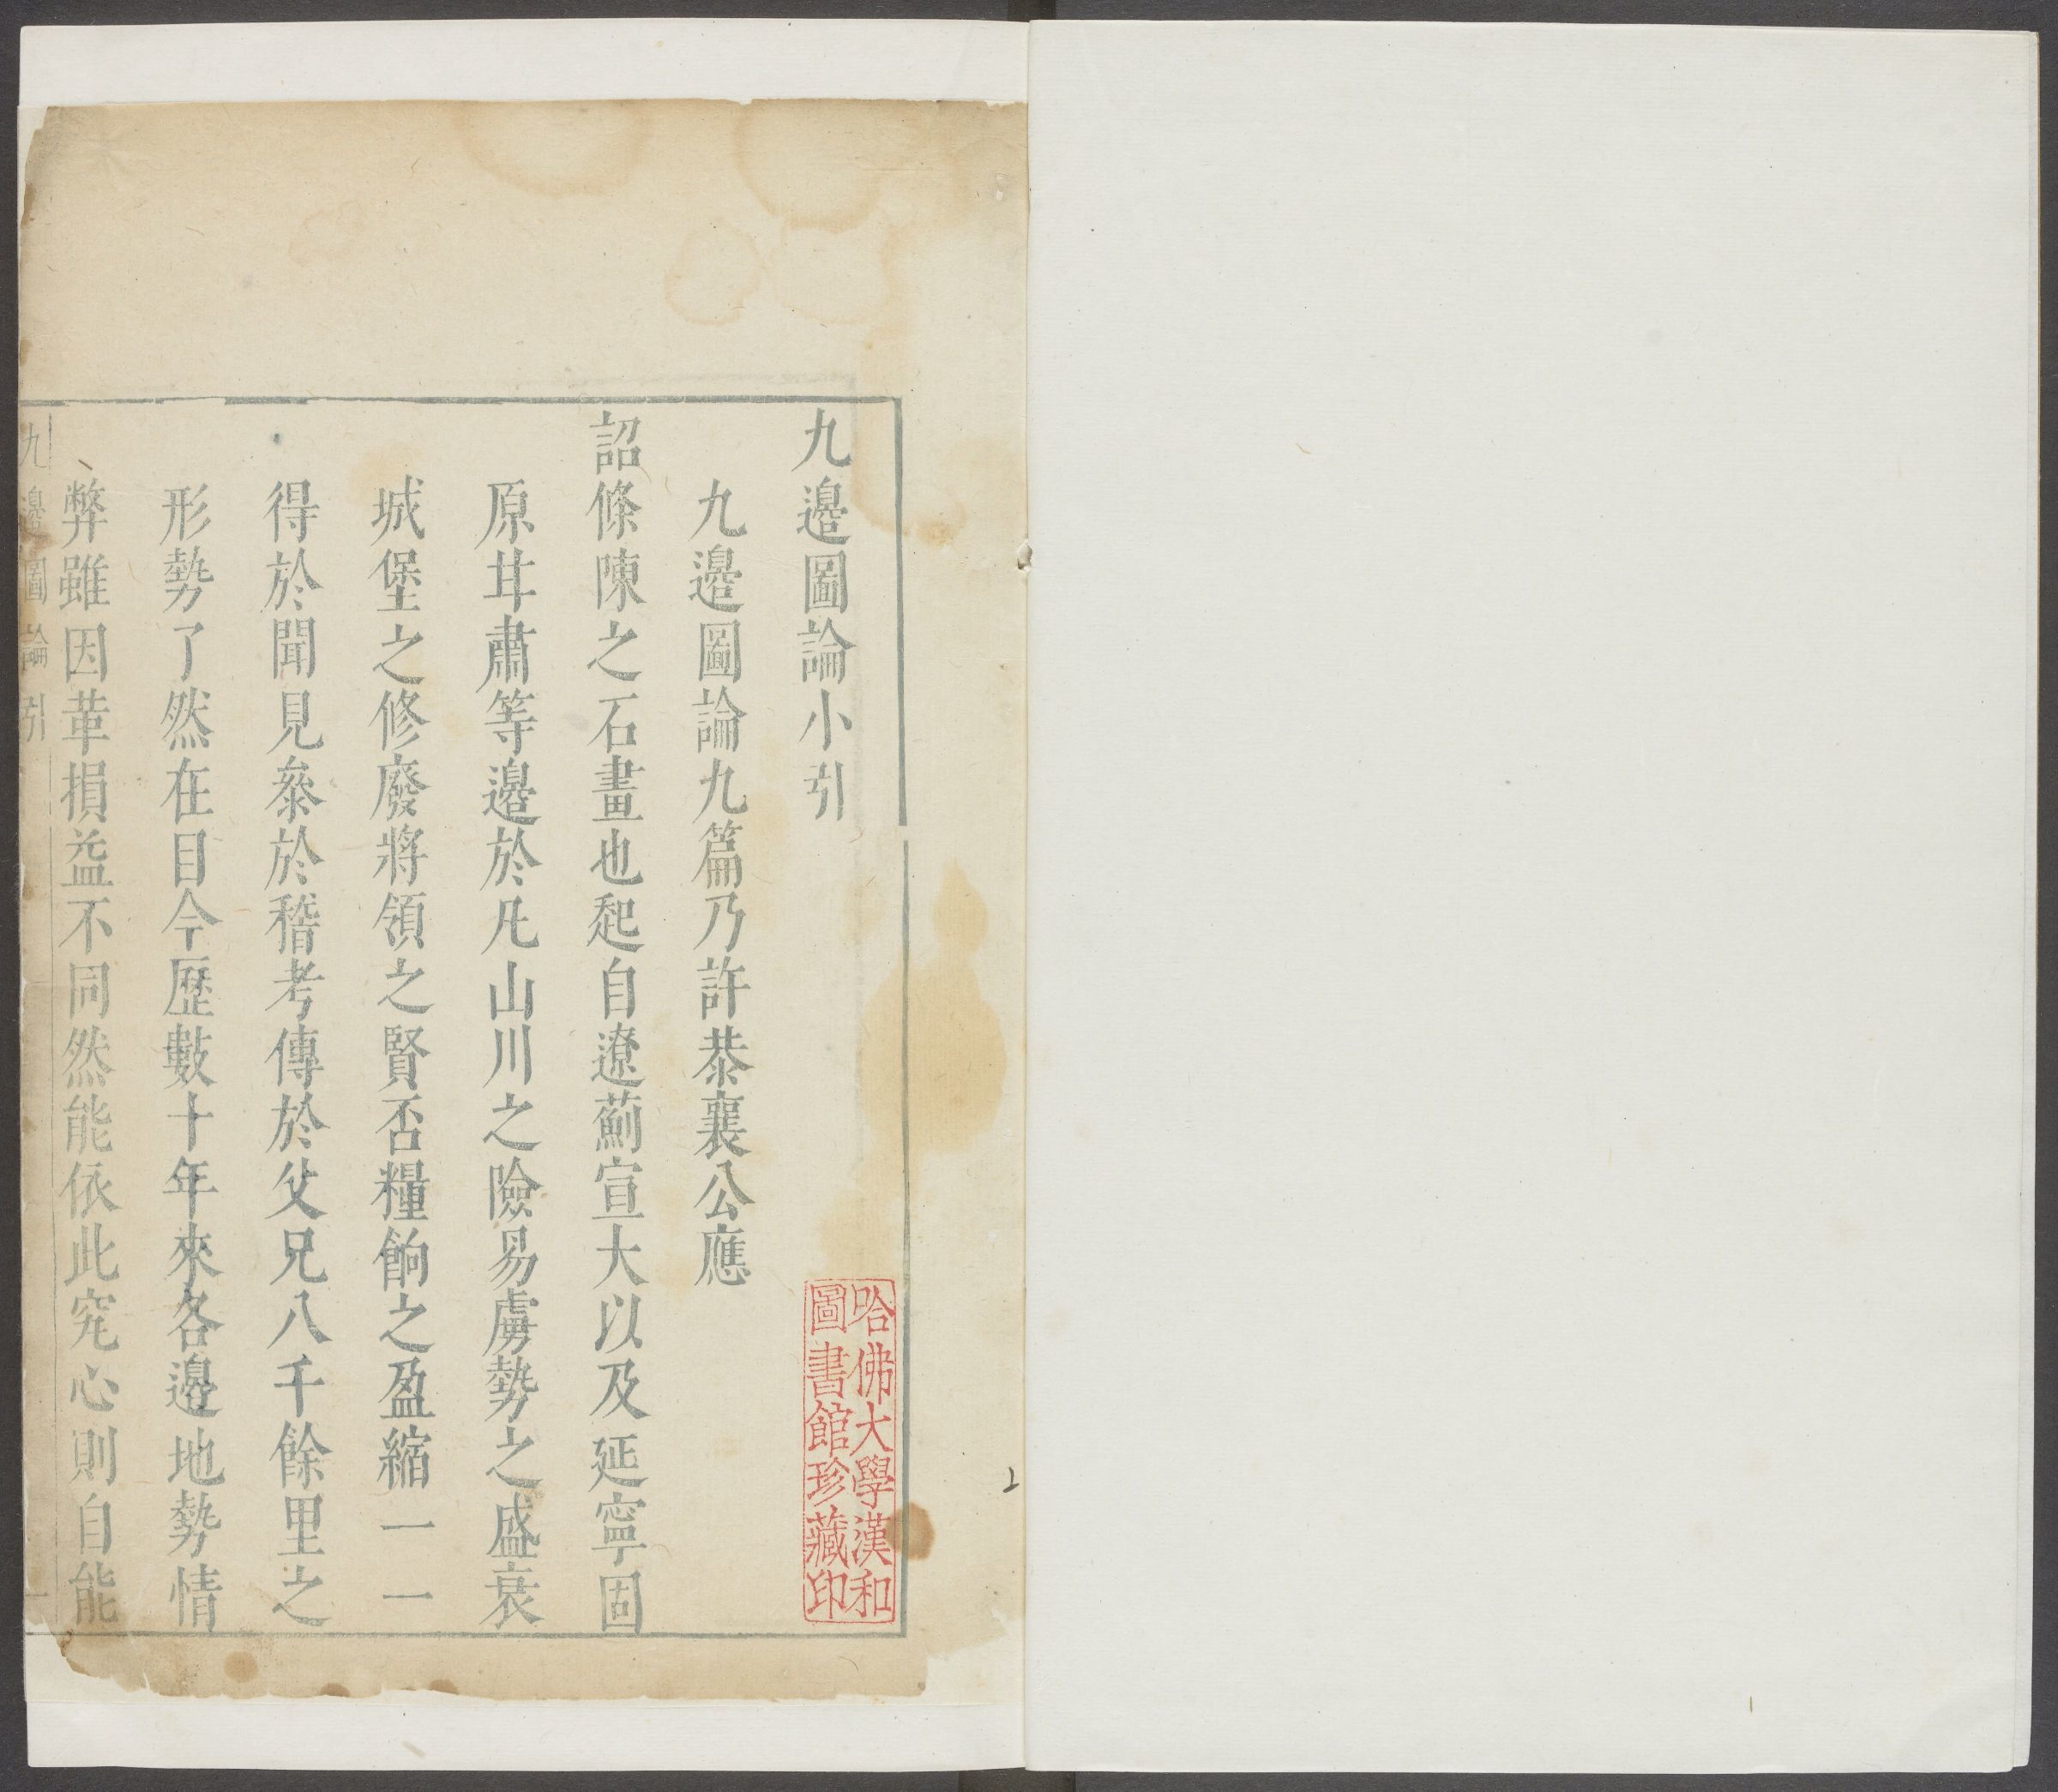 九邊圖論小引
九邊圖論九篇乃許恭襄公應
詔條陳之石畫也起自遼薊宣大以及延寧固
原甘肅等邊於凡山川之險易虜勢之盛衰
城堡之修廢將領之賢否糧餉之盈縮一一
得於聞見叅於稽考傳於父兄八千餘里之
形勢了然在目今歷數十年來各邊地勢情
弊雖因革損益不同然能依此究心則自能
九邊圖論 引 一
哈佛大學漢和
圖書館珍藏印